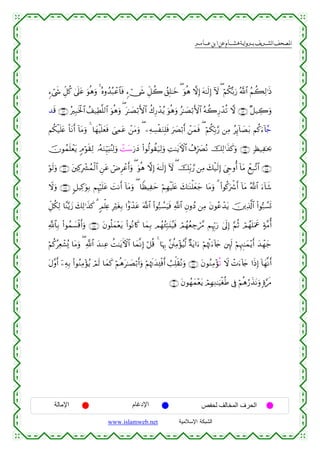 المصحف الشريف برواية هشام عن ابن عامر
ذَٰلِكُمُ ٱللَّهُ رَبُّكُمْ لَآ إِلَٰهَ إِلَّا هُوَ خَٰلِقُ كُلِّ شَىْءٍ فَٱعْبُدُوهُ وَهُوَ عَلَىٰ كُلِّ شَىْءٍ
وَكِيلٌ لَّا تُدْرِكُهُ ٱلْأَبْصَٰرُ وَهُوَ يُدْرِكُ ٱلْأَبْصَٰرَ وَهُوَ ٱللَّطِيفُ ٱلْخَبِيرُ قَد
جَّآءَكُم بَصَآئِرُ مِن رَّبِّكُمْ فَمَنْ أَبْصَرَ فَلِنَفْسِهِۦ وَمَنْ عَمِىَ فَعَلَيْهَا وَمَآ أَنَا۠ عَلَيْكُم
بِحَفِيظٍ وَكَذَٰلِكَ نُصَرِّفُ ٱلْأٓيَٰتِ وَلِيَقُولُوا۟ دَرَسَتْ وَلِنُبَيِّنَهُۥ لِقَوْمٍ يَعْلَمُونَ
ٱتَّبِعْ مَآ أُوحِىَ إِلَيْكَ مِن رَّبِّكَ لَآ إِلَٰهَ إِلَّا هُوَ وَأَعْرِضْ عَنِ ٱلْمُشْرِكِينَ وَلَوْ
شَآءَ ٱللَّهُ مَآ أَشْرَكُوا۟ وَمَا جَعَلْنَٰكَ عَلَيْهِمْ حَفِيظًا وَمَآ أَنتَ عَلَيْهِم بِوَكِيلٍ وَلَا
تَسُبُّوا۟ ٱلَّذِينَ يَدْعُونَ مِن دُونِ ٱللَّهِ فَيَسُبُّوا۟ ٱللَّهَ عَدْوًۢا بِغَيْرِ عِلْمٍ كَذَٰلِكَ زَيَّنَّا لِكُلِّ
أُمَّةٍ عَمَلَهُمْ ثُمَّ إِلَىٰ رَبِّهِم مَّرْجِعُهُمْ فَيُنَبِّئُهُم بِمَا كَانُوا۟ يَعْمَلُونَ وَأَقْسَمُوا۟ بِٱللَّهِ
جَهْدَ أَيْمَٰنِهِمْ لَئِن جَآءَتْهُمْ ءَايَةٌ لَّيُؤْمِنُنَّ بِهَا قُلْ إِنَّمَا ٱلْأٓيَٰتُ عِندَ ٱللَّهِ وَمَا يُشْعِرُكُمْ
أَنَّهَآ إِذَا جَآءَتْ لَا تُؤْمِنُونَ وَنُقَلِّبُ أَفْـِٔدَتَهُمْ وَأَبْصَٰرَهُمْ كَمَا لَمْ يُؤْمِنُوا۟ بِهِۦٓ أَوَّلَ
مَرَّةٍ وَنَذَرُهُمْ فِى طُغْيَٰنِهِمْ يَعْمَهُونَ
الحرف المخالف لحفص الإدغام الإمالة
www.islamweb.net الشبكة الإسلامية